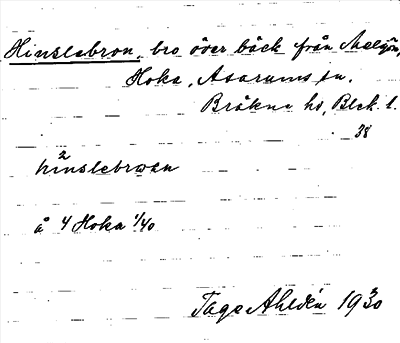 Hinslebron, bro över bäck från
Hoka, Asarums sn.
Bräkne hd, Blek. l.
38
hinslebrwån
å 4 Hoka 1/40
Tage Ahldén 1930